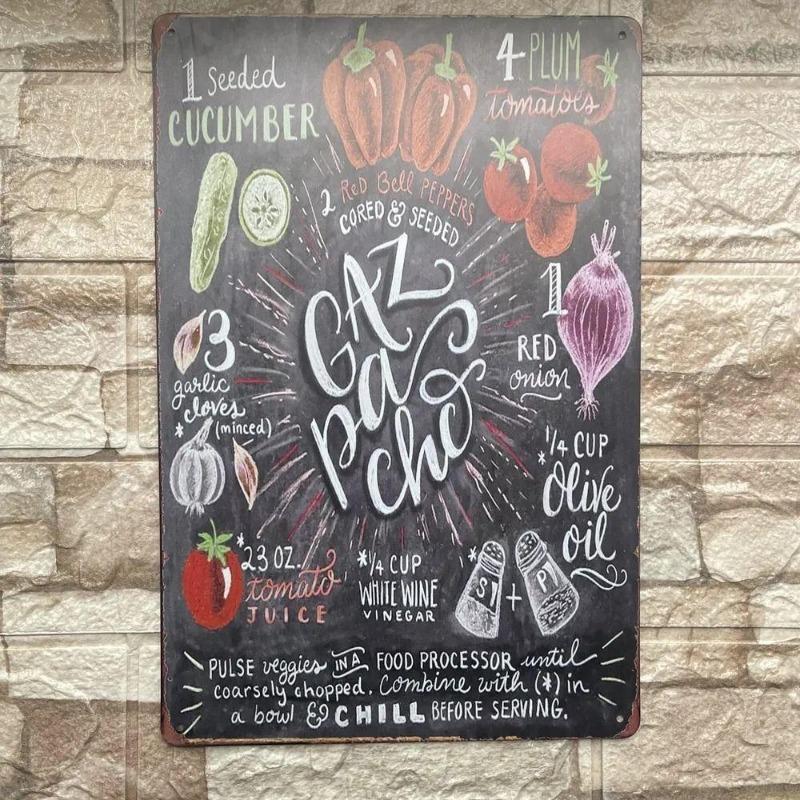 1 Seeded
CUCUMBER
2 Red Bell PEPPERS
CORED & SEEDED
4 PLUM
tomatoes
GAZ
pa
cho
1
RED
onion
3
garlic
cloves
*(minced)
1/4 CUP
*Olive
oil
*23 OZ.
tomato
JUICE
*1/4 CUP
WHITE WINE
VINEGAR
*S + P
PULSE veggies IN A FOOD PROCESSOR until
coarsely chopped. Combine with (*) in
a bowl & CHILL BEFORE SERVING.